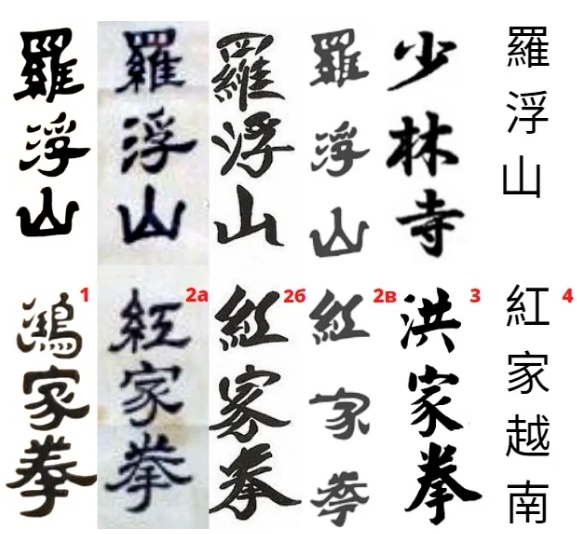 羅浮山
羅浮山
羅浮山
羅浮山
少林寺
羅浮山
1
鴻家拳
2а
紅家拳
2б
紅家拳
2в
紅家拳
3
洪家拳
4
紅家越南